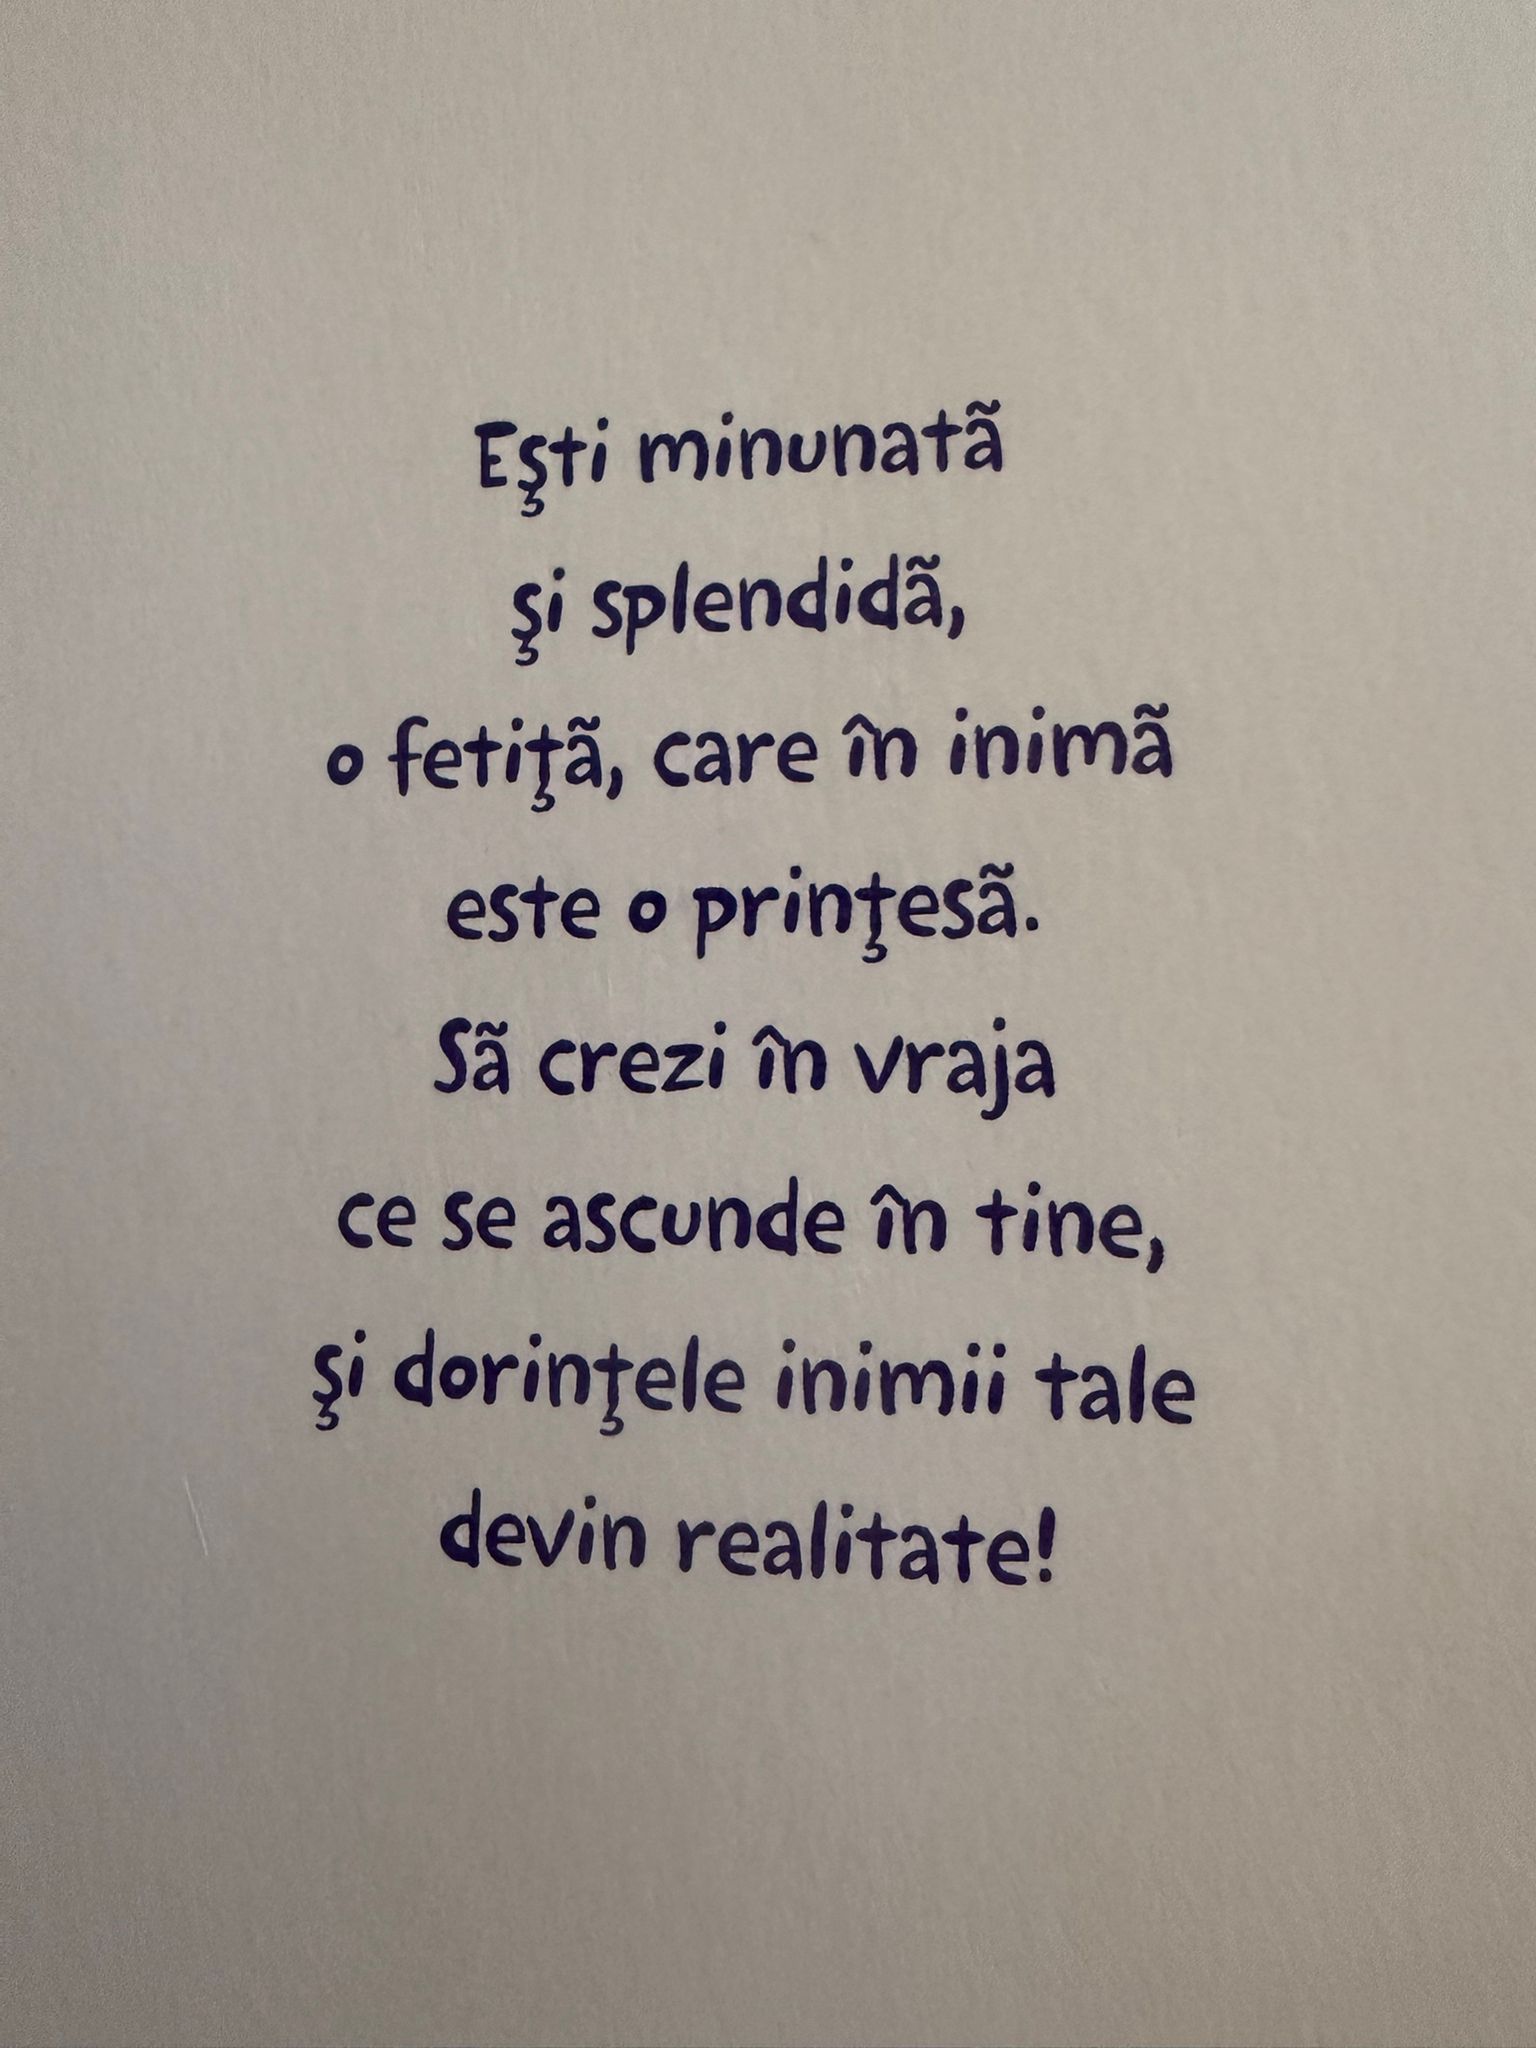 Eşti minunatã
şi splendidã,
o fetiţã, care în inimã
este o prinţesã.
Sã crezi în vraja
ce se ascunde în tine,
şi dorinţele inimii tale
devin realitate!